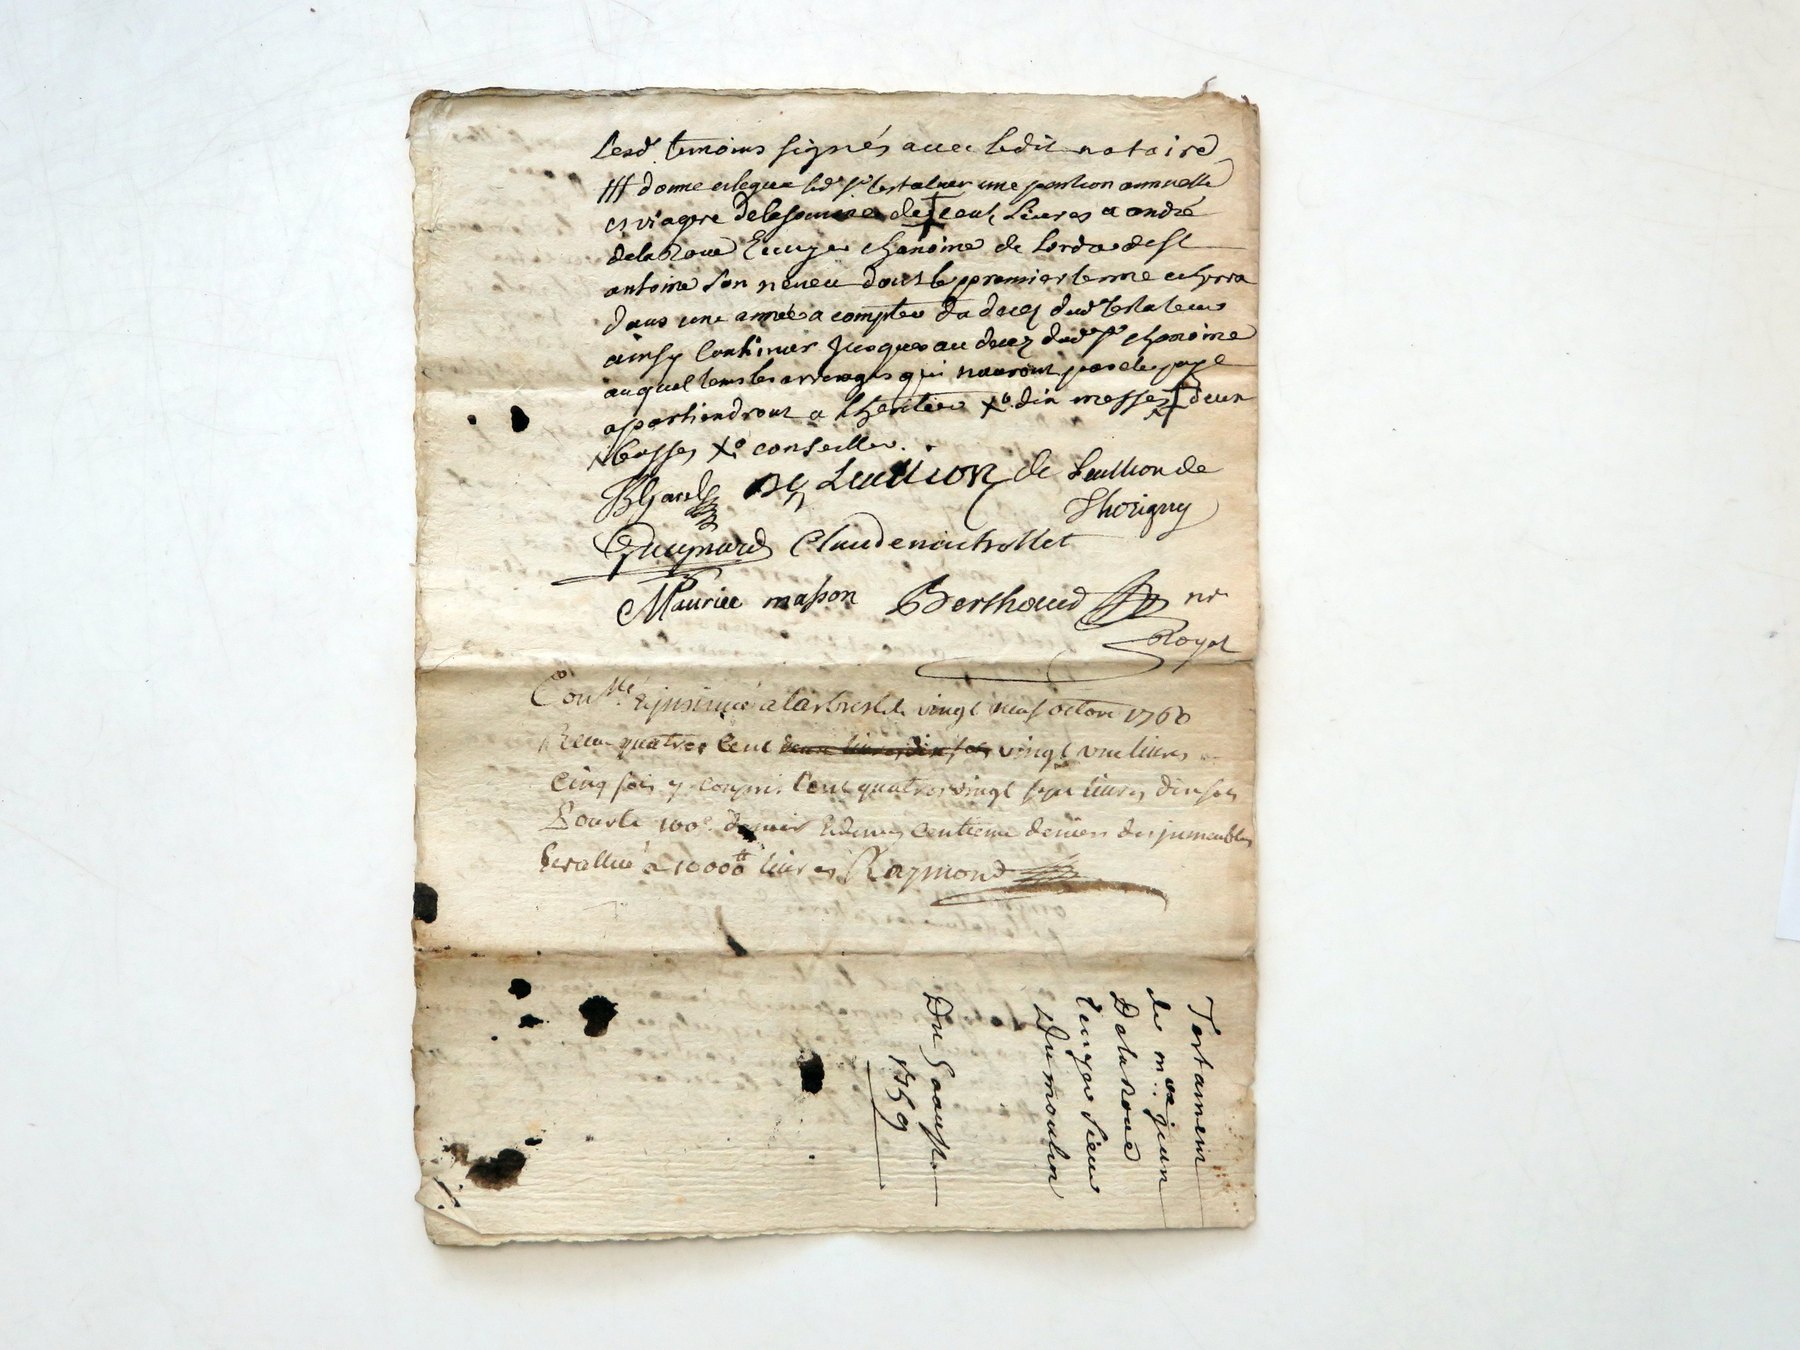 lesd. temoins signés avec ledit notaire
/// donne et legue led. sr. testateur une pention annuelle
et viagere de la somme de cent livres a andré
de la Roue Ecuyer chanoine de lordre de st
antoine son neveu dont le premier terme echerra
dans une année a compter du deces dud. testateur
ainsy continuer jusques au decez dud. sr. chanoine
auquel tems les arrerages qui nauront pas eté payé
apartiendront a lheritier Xo. dix messes deux
basses Xo. conseiller.
de Luillion de
Thorigny
Guignard Claude
Maurice masson Berthaud nre
Royal
Con.lle & insinué a vingt neuf octbre 1760
Reçu quatre cent vingt une livres
cinq sols y compris cent quatre vingt sept livres dix sols
Pour le 100e. denier & demy centieme denier des immeubles
Evallué a 10000# livres Raymond
Testament
de mre. jean
De la Roue
Ecuyer sieur
Dumoulin
Du 1759